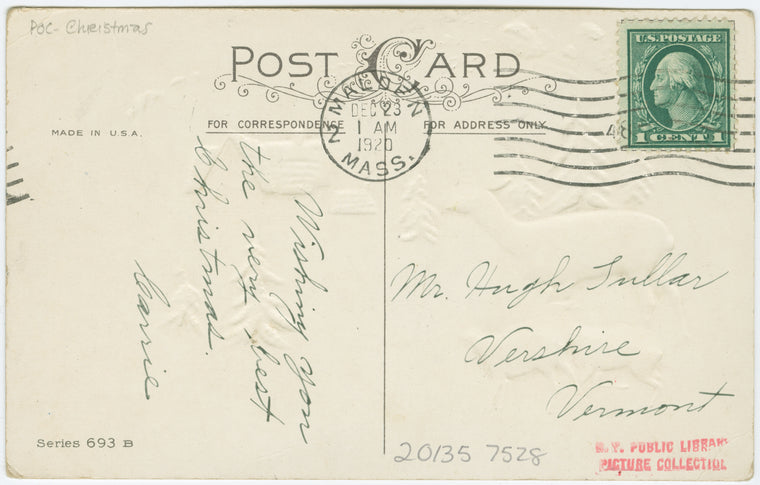 POC- Christmas
POST CARD
U.S. POSTAGE
1 CENT 1
MALDEN
DEC 23
1 AM
1920
MASS.
FOR CORRESPONDENCE
FOR ADDRESS ONLY
MADE IN U.S.A.
Wishing you
the very best
Christmas.
Carrie
Mr. Hugh Sullar
Vershire
Vermont
Series 693 B
20135 7528
N.Y. PUBLIC LIBRARY
PICTURE COLLECTION